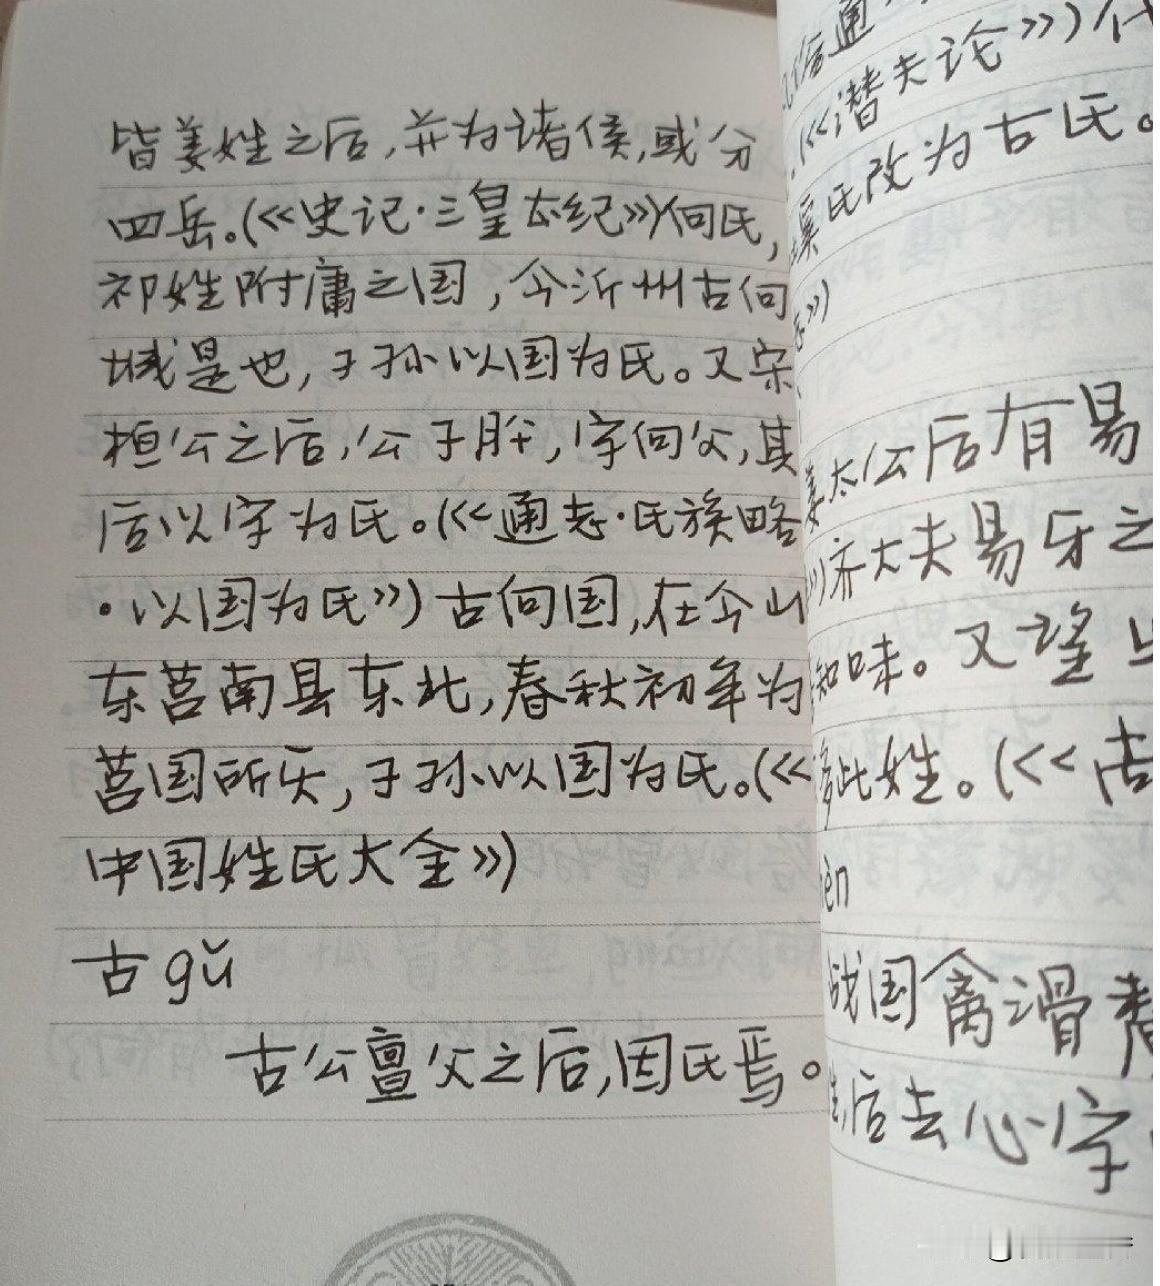 皆姜姓之后,并为诸侯,或分
四岳。(《史记·三皇本纪》)向氏,
祁姓附庸之国,今沂州古向
城是也,子孙以国为氏。又宋
桓公之后,公子肸,字向父,其
后以字为氏。(《通志·氏族略
·以国为氏》)古向国,在今山
东莒南县东北,春秋初年为
莒国所灭,子孙以国为氏。(《
中国姓氏大全》)
古 gǔ
古公亶父之后,因氏焉。
俗通
《潜夫论》)代
氏改为古氏。
》)
姜太公后有易
》)齐大夫易牙之
知味。又望
此姓。(《
èn
战国禽滑
后去心字